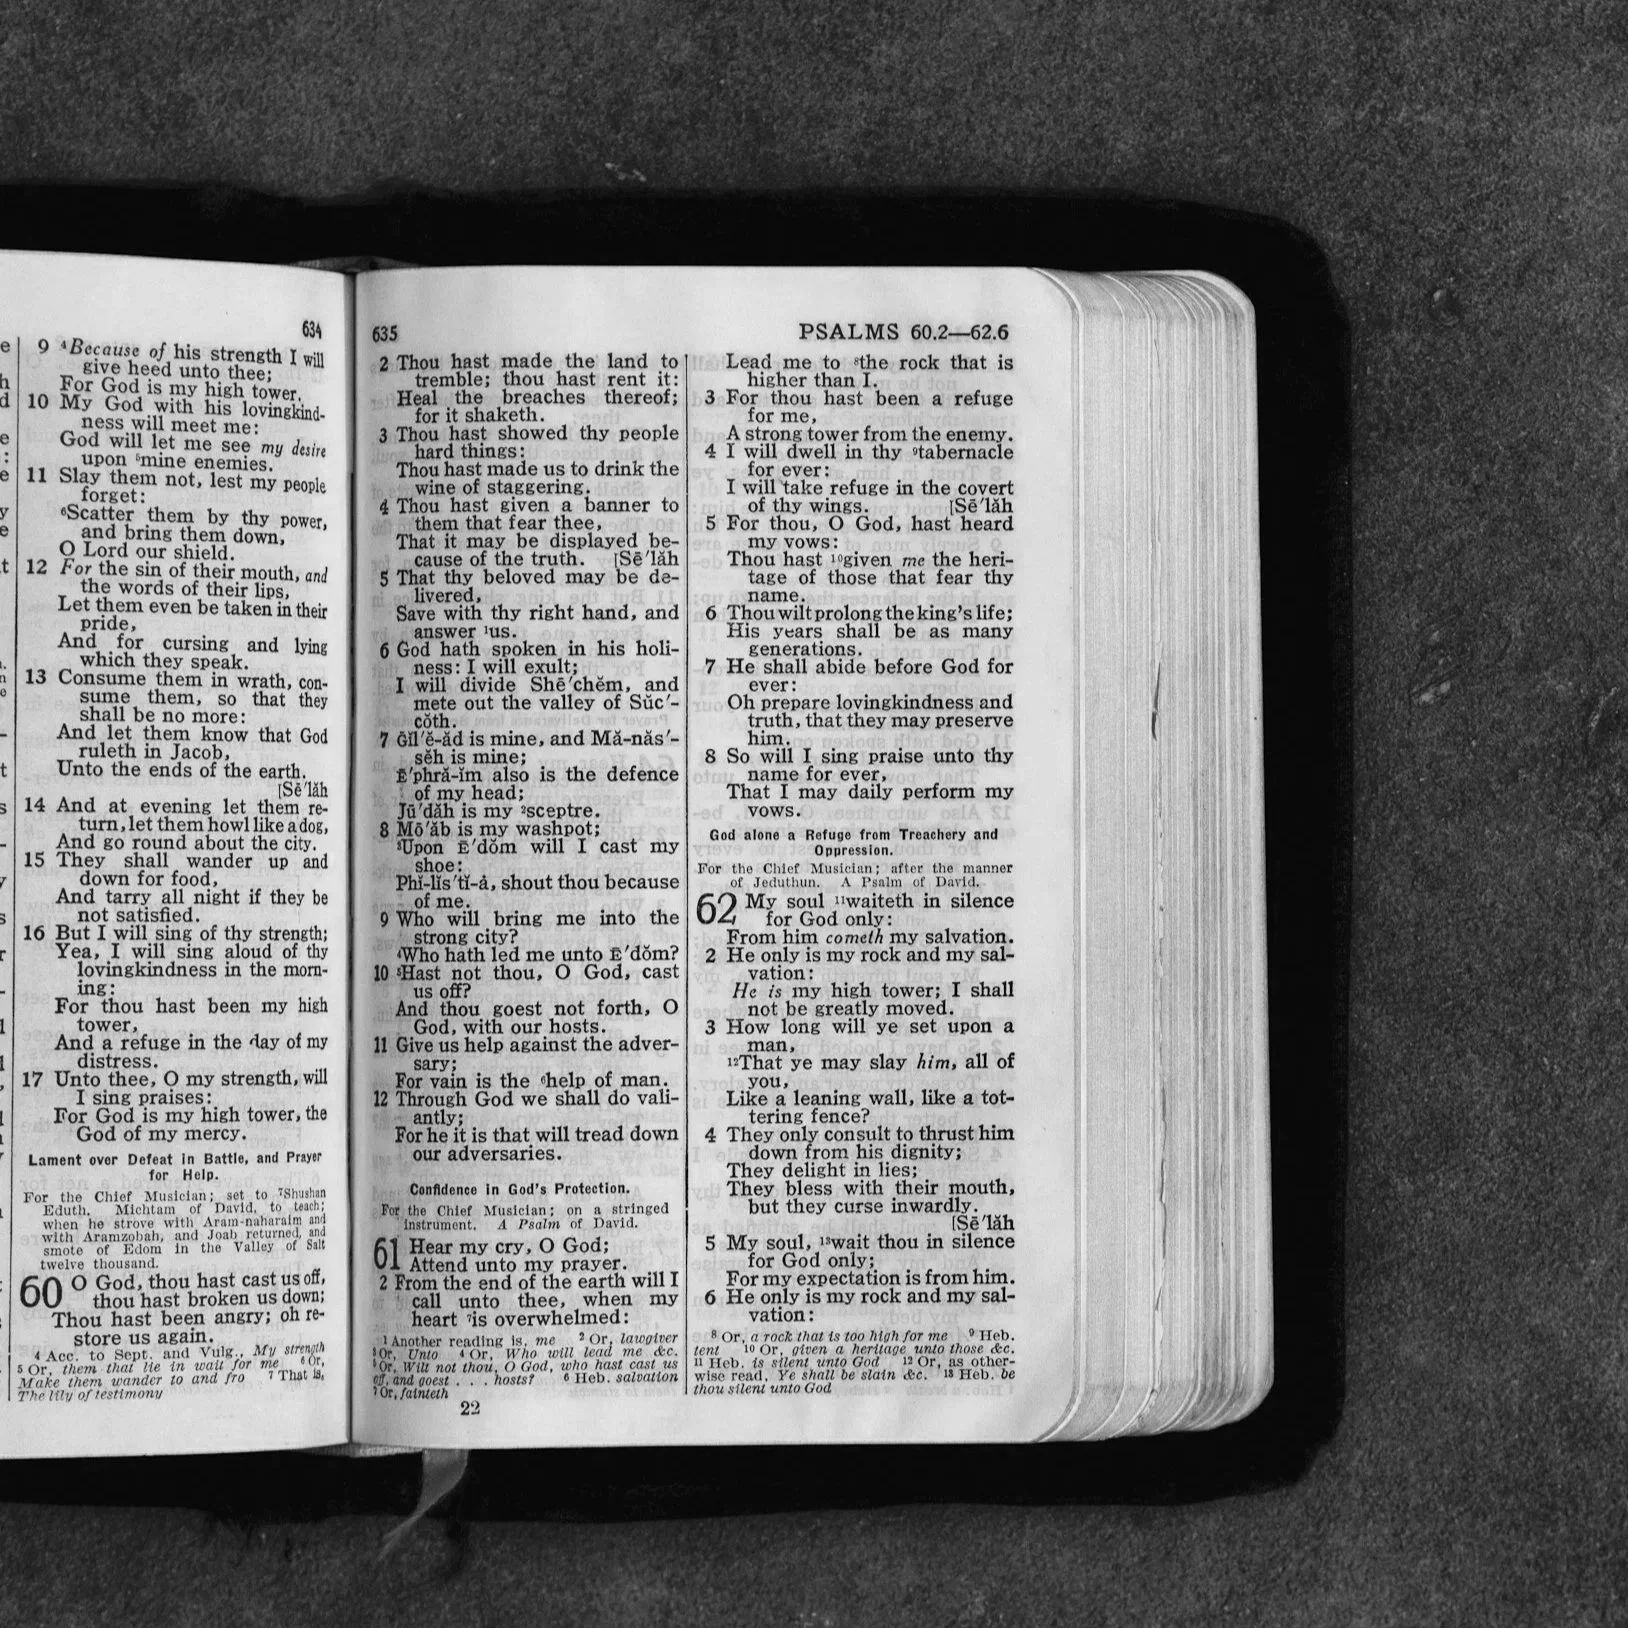 634
9 ⁴Because of his strength I will
give heed unto thee;
For God is my high tower.
10 My God with his lovingkind-
ness will meet me:
God will let me see my desire
upon ⁵mine enemies.
11 Slay them not, lest my people
forget:
⁶Scatter them by thy power,
and bring them down,
O Lord our shield.
12 For the sin of their mouth, and
the words of their lips,
Let them even be taken in their
pride,
And for cursing and lying
which they speak.
13 Consume them in wrath, con-
sume them, so that they
shall be no more:
And let them know that God
ruleth in Jacob,
Unto the ends of the earth.
[Sē′lăh
14 And at evening let them re-
turn, let them howl like a dog,
And go round about the city.
15 They shall wander up and
down for food,
And tarry all night if they be
not satisfied.
16 But I will sing of thy strength;
Yea, I will sing aloud of thy
lovingkindness in the morn-
ing:
For thou hast been my high
tower,
And a refuge in the day of my
distress.
17 Unto thee, O my strength, will
I sing praises:
For God is my high tower, the
God of my mercy.
Lament over Defeat in Battle, and Prayer
for Help.
For the Chief Musician; set to ⁷Shushan
Eduth. Michtam of David, to teach;
when he strove with Aram-naharaim and
with Aramzobah, and Joab returned, and
smote of Edom in the Valley of Salt
twelve thousand.
60 O God, thou hast cast us off,
thou hast broken us down;
Thou hast been angry; oh re-
store us again.
4 Acc. to Sept. and Vulg., My strength
5 Or, them that lie in wait for me 6 Or,
Make them wander to and fro 7 That is,
The lily of testimony
635
PSALMS 60.2—62.6
2 Thou hast made the land to
tremble; thou hast rent it:
Heal the breaches thereof;
for it shaketh.
3 Thou hast showed thy people
hard things:
Thou hast made us to drink the
wine of staggering.
4 Thou hast given a banner to
them that fear thee,
That it may be displayed be-
cause of the truth. [Sē′lăh
5 That thy beloved may be de-
livered,
Save with thy right hand, and
answer ¹us.
6 God hath spoken in his holi-
ness: I will exult;
I will divide Shē′chĕm, and
mete out the valley of Sŭc′-
cŏth.
7 Ḡĭl′ĕ-ăd is mine, and Mă-năs′-
sĕh is mine;
Ē′phră-ĭm also is the defence
of my head;
Jū′dăh is my ²sceptre.
8 Mō′ăb is my washpot;
³Upon Ē′dŏm will I cast my
shoe:
Phĭ-lĭs′tĭ-ȧ, shout thou because
of me.
9 Who will bring me into the
strong city?
⁴Who hath led me unto Ē′dŏm?
10 ⁵Hast not thou, O God, cast
us off?
And thou goest not forth, O
God, with our hosts.
11 Give us help against the adver-
sary;
For vain is the ⁶help of man.
12 Through God we shall do vali-
antly;
For he it is that will tread down
our adversaries.
Confidence in God's Protection.
For the Chief Musician; on a stringed
instrument. A Psalm of David.
61 Hear my cry, O God;
Attend unto my prayer.
2 From the end of the earth will I
call unto thee, when my
heart ⁷is overwhelmed:
1 Another reading is, me 2 Or, lawgiver
3 Or, Unto 4 Or, Who will lead me &c.
5 Or, Wilt not thou, O God, who hast cast us
off, and goest . . . hosts? 6 Heb. salvation
7 Or, fainteth
22
Lead me to ⁸the rock that is
higher than I.
3 For thou hast been a refuge
for me,
A strong tower from the enemy.
4 I will dwell in thy ⁹tabernacle
for ever:
I will take refuge in the covert
of thy wings. [Sē′lăh
5 For thou, O God, hast heard
my vows:
Thou hast ¹⁰given me the heri-
tage of those that fear thy
name.
6 Thou wilt prolong the king's life;
His years shall be as many
generations.
7 He shall abide before God for
ever:
Oh prepare lovingkindness and
truth, that they may preserve
him.
8 So will I sing praise unto thy
name for ever,
That I may daily perform my
vows.
God alone a Refuge from Treachery and
Oppression.
For the Chief Musician; after the manner
of Jeduthun. A Psalm of David.
62 My soul ¹¹waiteth in silence
for God only:
From him cometh my salvation.
2 He only is my rock and my sal-
vation:
He is my high tower; I shall
not be greatly moved.
3 How long will ye set upon a
man,
¹²That ye may slay him, all of
you,
Like a leaning wall, like a tot-
tering fence?
4 They only consult to thrust him
down from his dignity;
They delight in lies;
They bless with their mouth,
but they curse inwardly.
[Sē′lăh
5 My soul, ¹³wait thou in silence
for God only;
For my expectation is from him.
6 He only is my rock and my sal-
vation:
8 Or, a rock that is too high for me 9 Heb.
tent 10 Or, given a heritage unto those &c.
11 Heb. is silent unto God 12 Or, as other-
wise read, Ye shall be slain &c. 13 Heb. be
thou silent unto God